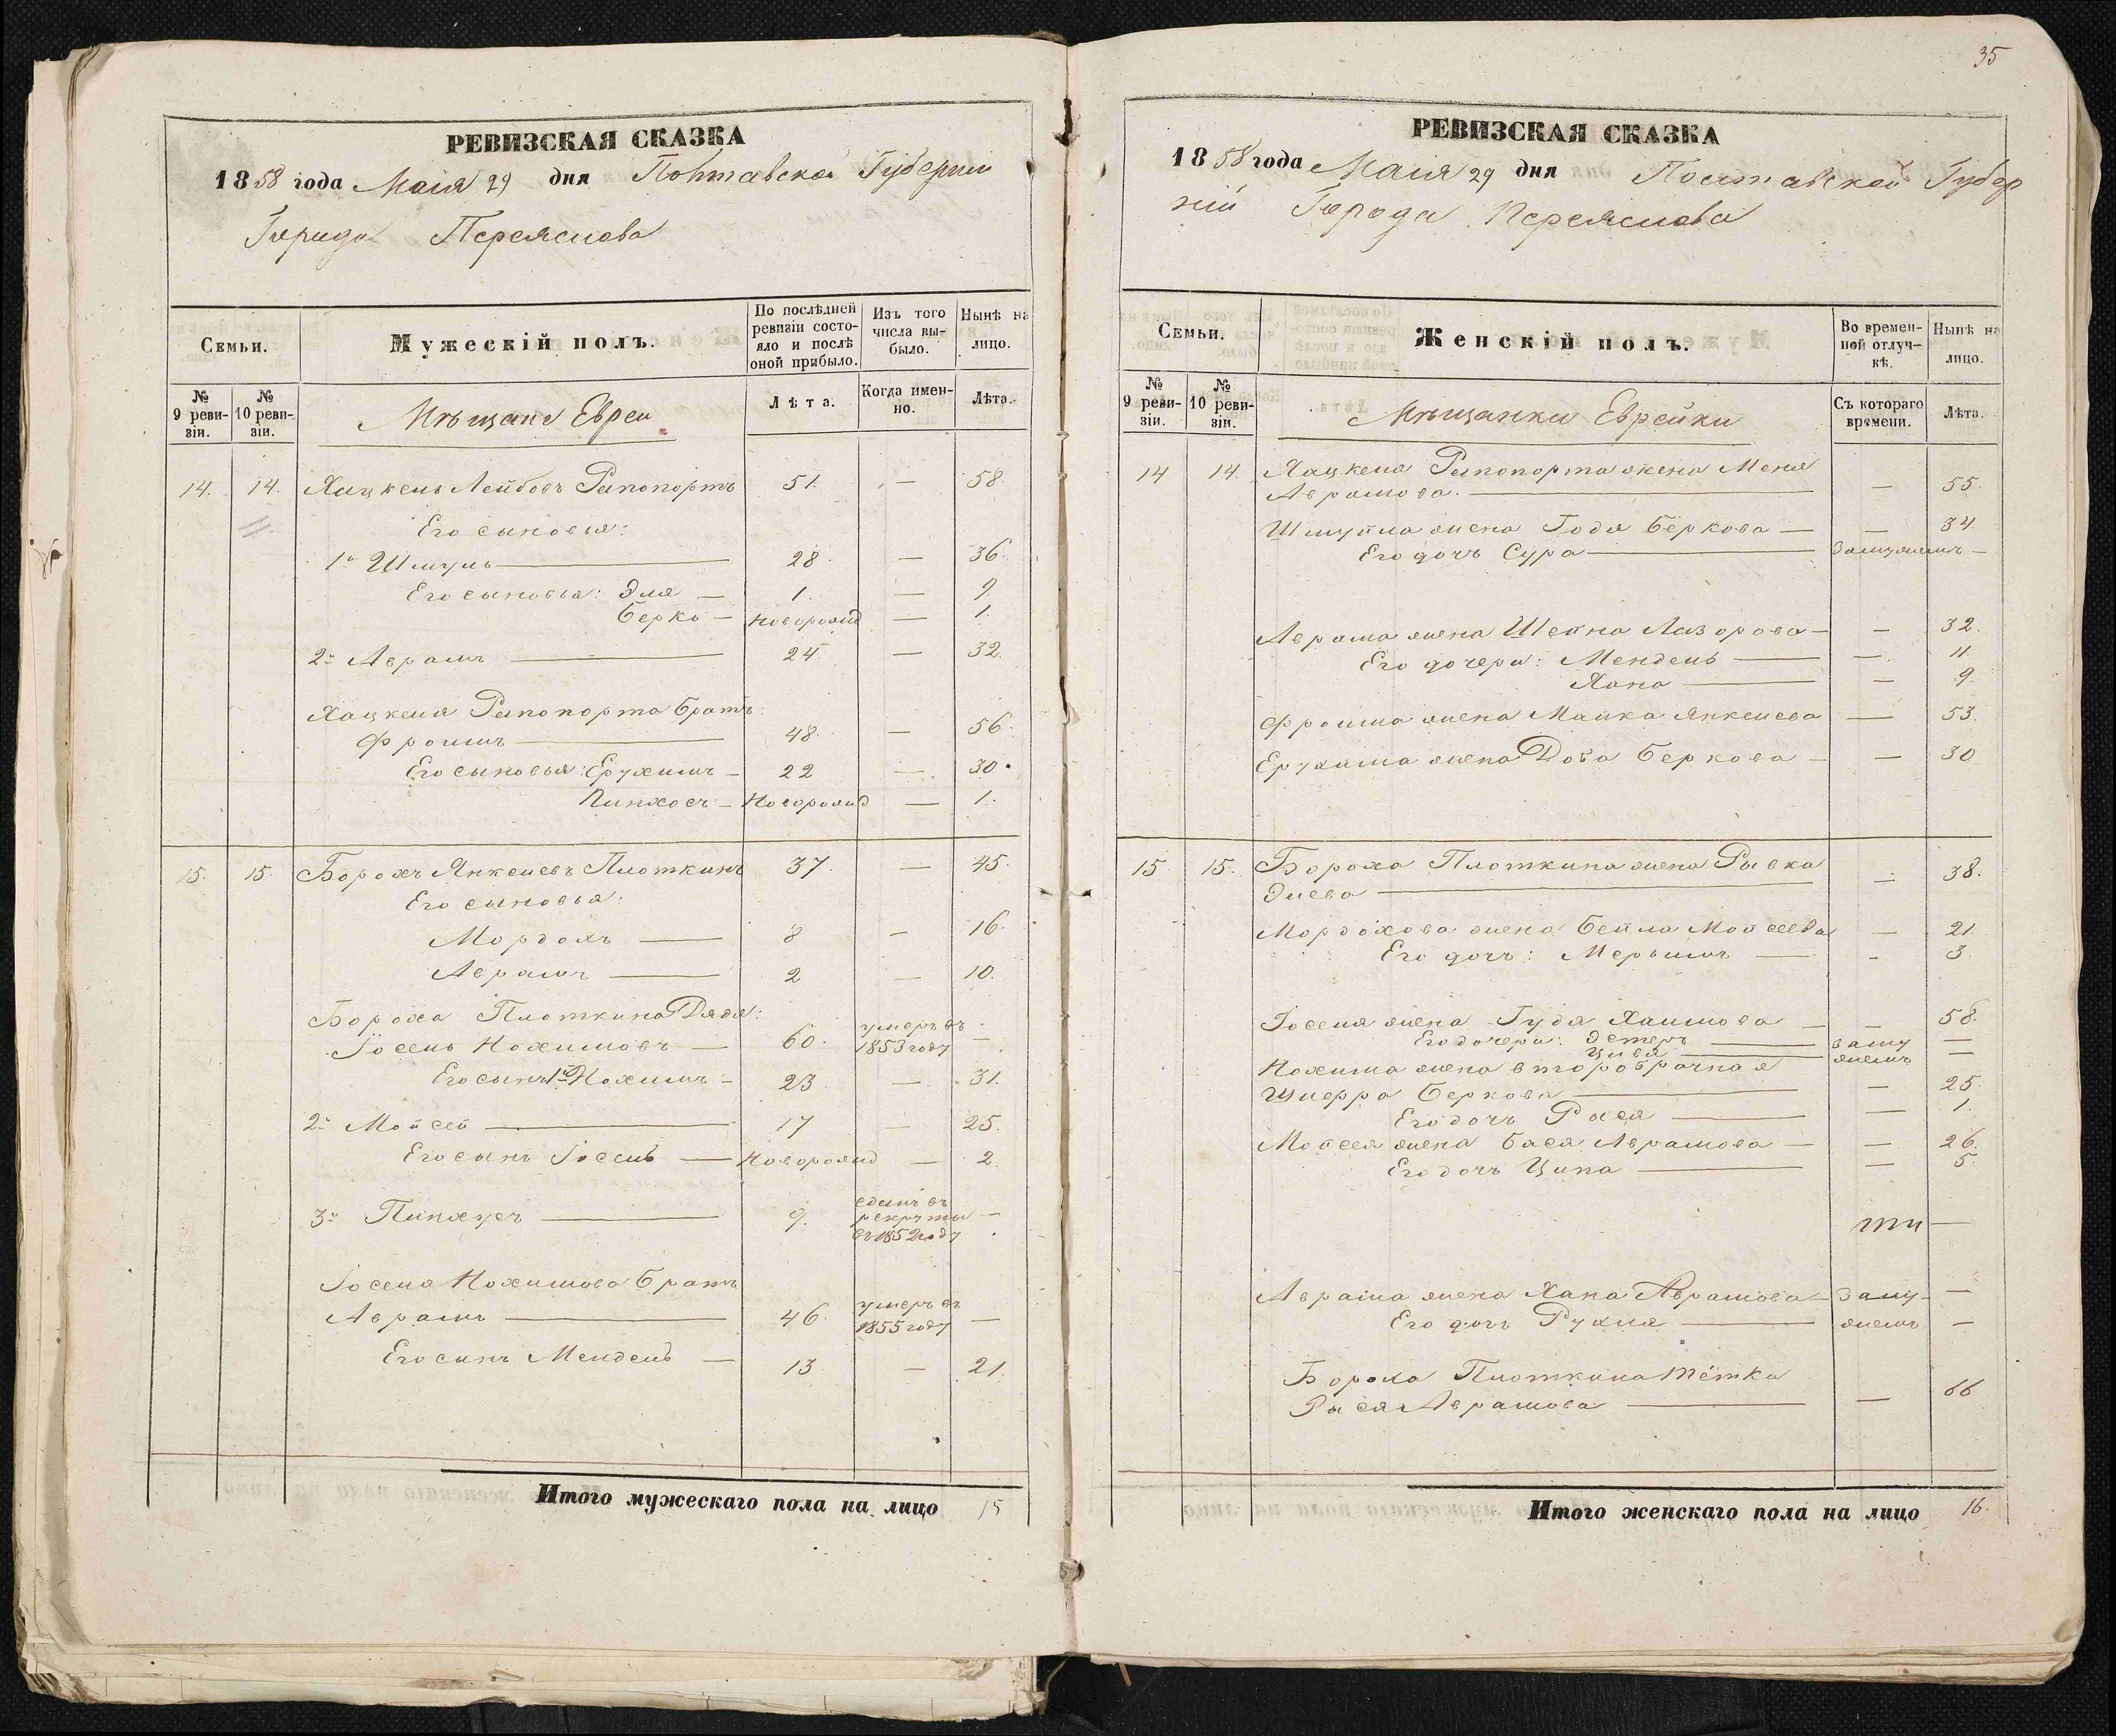 РЕВИЗСКАЯ СКАЗКА
1858 года Маія 29 дня Полтавской Губерніи
Города Переяслова
Семьи.
Мужескій полъ.
По послѣдней ревизіи состояло и послѣ оной прибыло.
Изъ того числа выбыло.
Нынѣ на лицо.
№ 9 ревизіи.
№ 10 ревизіи.
Мѣщане Евреи
Лѣта.
Когда именно.
Лѣта.
14. 14. Хацкель Лейбовъ Рапопортъ 51. — 58.
Его сыновья:
1й Шмуль — 28 — 36.
Его сыновья: Эля — 1. — 9.
Берко — Новорожд — 1.
2й Аврамъ — 24 — 32.
Хацкеля Рапопорта братъ:
Фроимъ — 48. — 56.
Его сыновья: Ерухимъ — 22 — 30.
Пинхосъ — Новорожд — 1.
15. 15. Борохъ Янкелевъ Плоткинъ 37. — 45.
Его сыновья:
Мордохъ — 8 — 16.
Аврамъ — 2 — 10.
Бороха Плоткина Дядя:
Іосель Нохимовъ — 60. умеръ въ 1853 году —
Его сынъ 1й Нохимъ — 23 — 31.
2й Мойсей — 17 — 25.
Его сынъ Іосель — Новорожд — 2
3й Пинхусъ — 9. сданъ въ рекруты въ 1852 году —
Іоселя Нохимова братъ
Аврамъ — 46. умеръ въ 1855 году —
Его сынъ Мендель — 13. — 21
Итого мужескаго пола на лицо 15
35
РЕВИЗСКАЯ СКАЗКА
1858 года Маія 29 дня Полтавской Губер
ніи Города Переяслова
Семьи.
Женскій полъ.
Во временной отлучкѣ.
Нынѣ на лицо.
№ 9 ревизіи.
№ 10 ревизіи.
Мѣщанки Еврейки
Съ котораго времени.
Лѣта.
14 14. Хацкеля Рапопорта жена Меня
Аврамова. — — 55.
Шмуйла жена Годя Беркова — — 34.
Его дочь Сура — Замужемъ —
Аврама жена Шейна Лазорова — — 32.
Его дочери: Мендель — — 11
Хана — — 9.
Фроима жена Малка Янкелева — 53.
Ерухима жена Доба Беркова — — 30
15 15. Бороха Плоткина жена Рывка
Элева — — 38.
Мордохова жена Бейла Мойсеева — 21.
Его дочь: Мерьимъ — - 3.
Іоселя жена Гудя Хаимова — — 58.
Его дочери: Эстеръ — заму —
Цивя — жемъ —
Нохима жена второбрачная
Цыерра Беркова — — 25.
Его дочь Рыся — — 1.
Мойсея жена Бася Аврамова — — 26.
Его дочь Ципа — — 5.
Аврама жена Хана Аврамова — Заму —
Его дочь Рухля — жемъ —
Бороха Плоткина тётка
Рыся Аврамова — — 66
Итого женскаго пола на лицо 16.